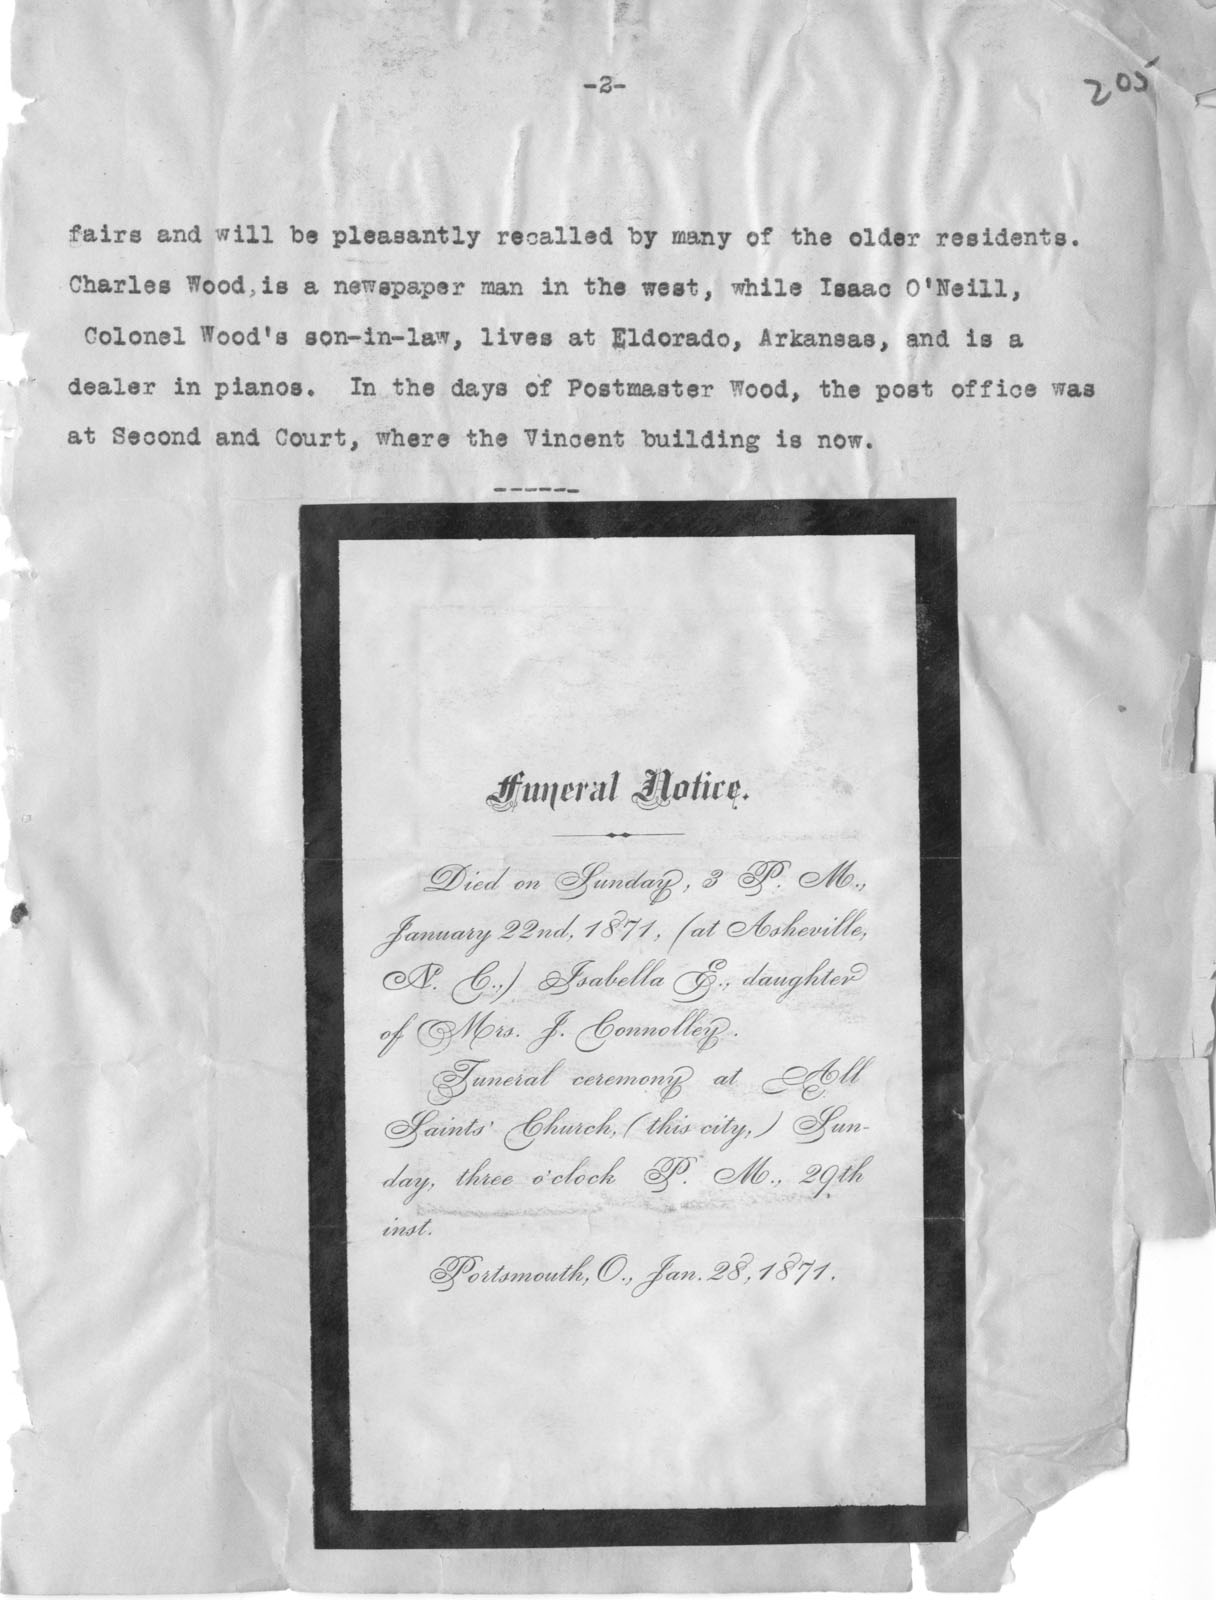 -2-
205
fairs and will be pleasantly recalled by many of the older residents.
Charles Wood, is a newspaper man in the west, while Isaac O'Neill,
Colonel Wood's son-in-law, lives at Eldorado, Arkansas, and is a
dealer in pianos. In the days of Postmaster Wood, the post office was
at Second and Court, where the Vincent building is now.
------
Funeral Notice.
Died on Sunday, 3 P. M.,
January 22nd, 1871, (at Asheville,
N. C.,) Isabella E., daughter
of Mrs. J. Connolley.
Funeral ceremony at All
Saints' Church, (this city,) Sun-
day, three o'clock P. M., 29th
inst.
Portsmouth, O., Jan. 28, 1871.